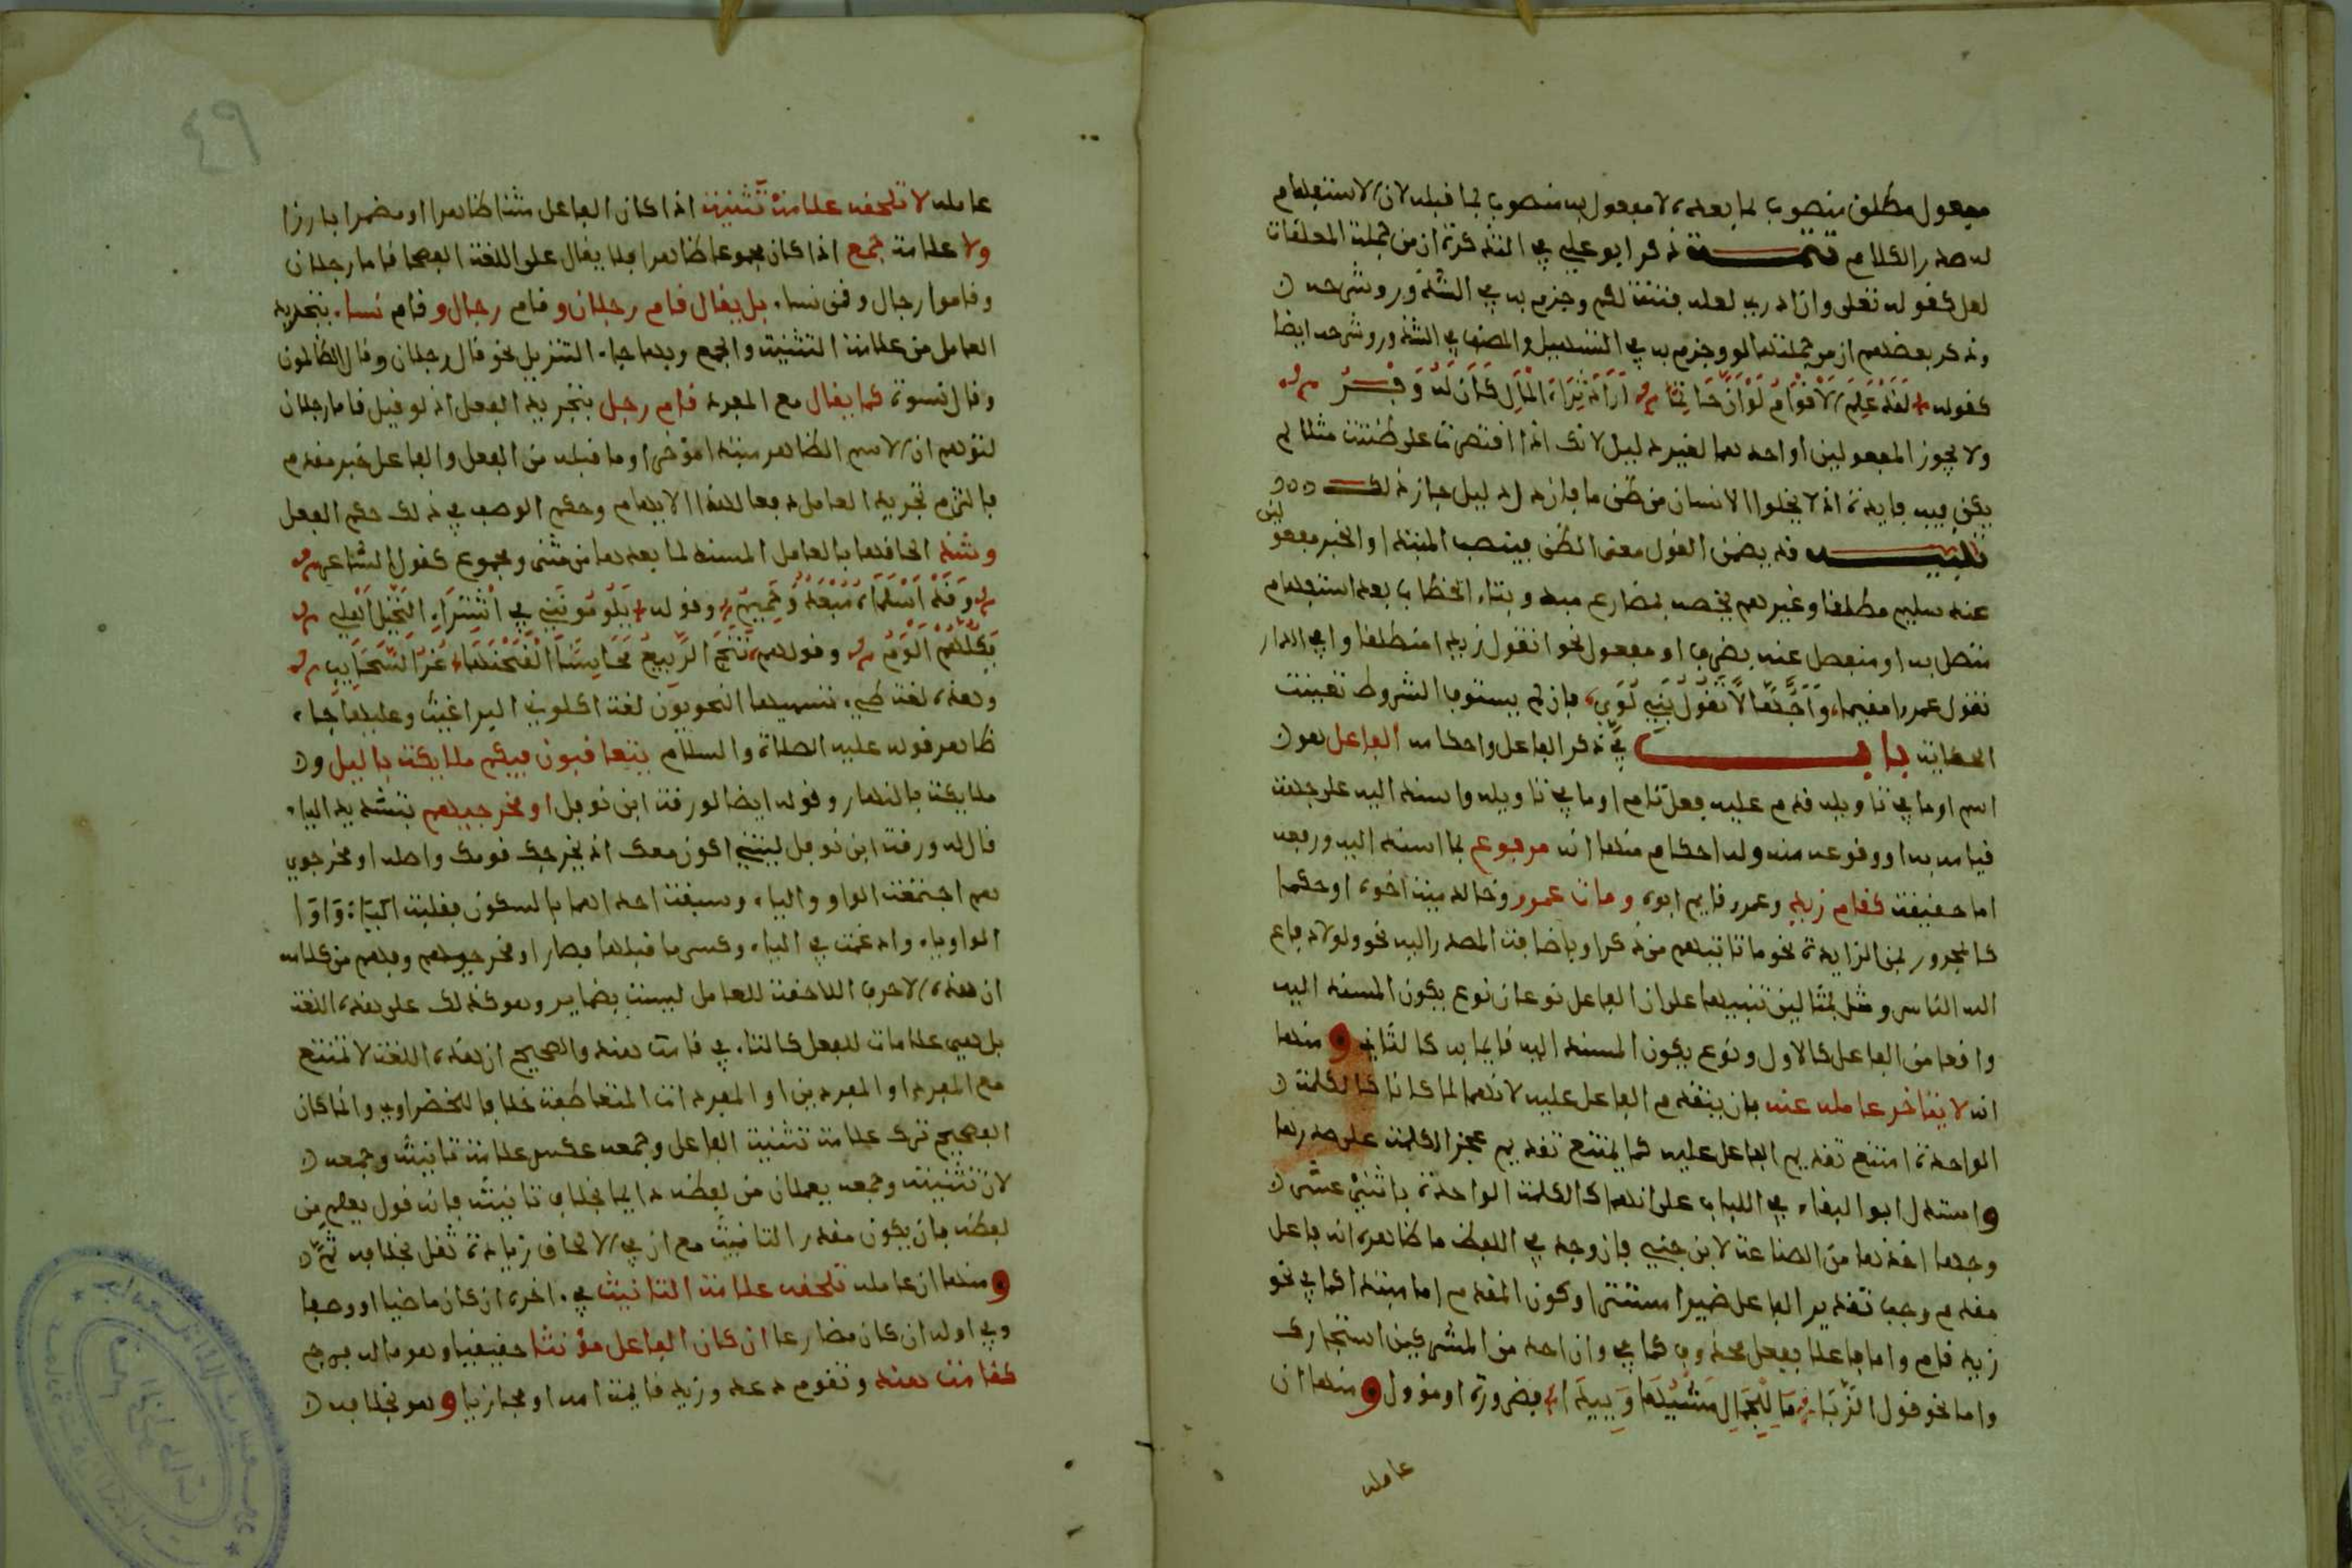 مفعول مطلق منصوب لما بعده لا مفعول به منصوب لما قبله لان الاستفهام
له صدر الكلام تتمـــة ذكر ابو علي في التذكرة ان من جملة المعلقات
لعل كقوله تعلى وان ادري لعله فتنة لكم وجزم به في الشذور وشرحه
وذكر بعضهم ان من جملتها لو وجزم به في التسهيل والمصنف في الشذور وشرحه ايضا
كقوله لَقَدْ عَلِمَ الاَقْوَامُ لَوْ اَنَّ حَاتِمًا اَرَادَ ثَرَاءَ الْمَالِ كَانَ لَهُ وَفْـــرُ
ولا يجوز المفعولين او احدهما لغير دليل لانك اذا اقتصرت على ظننت مثلا لم
يكن فيه فايدة اذ لا يخلوا الانسان من ظن ما فان دل دليل جاز ذلك
تنبيـــه قد يضمن القول معنى الظن فينصب المبتدا والخبر مفعولين
عند سليم مطلقا وغيرهم يخصه بمضارع مبدو بتاء الخطاب بعد استفهام
متصل به او منفصل عنه بضرف او مفعول نحو اتقول زيدا منطلقا وافي الدار
تقول عمرا مقيما وَاَجُهَّالًا تَقُولُ بَنِي لُوَيٍّ فان لم يستوف الشروط تعينت
الحكاية بـــاب في ذكر الفاعل واحكامه الفاعل هو
اسم او ما في تاويله قدم عليه فعل تام او ما في تاويله واسند اليه على جهة
قيامه به او وقوعه منه وله احكام منها انه مرفوع بما اسند اليه ورفعه
اما حقيقة كقام زيد وعمرو قايم ابوه ومات عمرو وخالد ميت اخوه او حكما
كالمجرور بمن الزايدة نحو ما تاتيهم من ذكر او باضافة المصدر اليه نحو ولولا دفاع
الله الناس ومثل بمثالين تنبيها على ان الفاعل نوعان نوع يكون المسند اليه
واقعا من الفاعل كالاول ونوع يكون المسند اليه قايما به كالثاني ومنها
انه لا يتاخر عامله عنه بان يتقدم الفاعل عليه لانهما لما كانا كالكلمة
الواحدة امتنع تقديم الفاعل عليه كما يمتنع تقديم عجز الكلمة على صدرها
واستدل ابو البقاء في اللباب على انهما كالكلمة الواحدة باثني عشر
وجها اخذها من الصناعة لابن جني فان وجد في اللفظ ما ظاهره انه فاعل
مقدم وجب تقدير الفاعل ضميرا مستترا وكون المقدم اما مبتدا كما في نحو
زيد قام واما فاعلا بفعل محذوف كما في وان احد من المشركين استجارك
واما نحو قول الزَّبَّا مَا لِلْجَمَالِ مَشْيُهَا وَئِيدَا فضرورة او مؤول ومنها ان
عامله
٤٩
عامله لا تلحقه علامة تثنية اذا كان الفاعل مثنا ظاهرا او مضمرا بارزا
ولا علامة جمع اذا كان مجموعا ظاهرا فلا يقال على اللغة الفصحا قاما رجلان
وقاموا رجال وقمن نساء بل يقال قام رجلان وقام رجال وقام نساء بتجريد
العامل من علامة التثنية والجمع وبها جاء التنزيل نحو قال رجلان وقال الظالمون
وقال نسوة كما يقال مع المفرد قام رجل بتجريد الفعل اذ لو قيل قاما رجلان
لتوهم ان الاسم الظاهر مبتدا مؤخرا وما قبله من الفعل والفاعل خبر مقدم
فالتزم تجريد العامل دفعا لهذا الايهام وحكم الوصف في ذلك حكم الفعل
وشذ الحاقها بالعامل المسند لما بعدها من مثنى ومجموع كقول الشاعر
وَقَدْ اَسْلَمَاهُ مُبْعَدٌ وَحَمِيمُ وقوله يَلُومُونَنِي فِي اشْتِرَاءِ النَّخِيلِ اَهْلِي
فَكُلُّهُمْ اَلْوَمُ وقولهم نَتَجَ الرَّبِيعُ مَحَاسِنًا اَلْقَحْنَهَا غُرُّ السَّحَايِبِ
وهذه لغة طيء تسميها النحويون لغة اكلوني البراغيث وعليها جاء
ظاهر قوله عليه الصلاة والسلام يتعاقبون فيكم ملايكة بالليل و
ملايكة بالنهار وقوله ايضا لورقة ابن نوفل او مخرجيهم بتشديد الياء
قال له ورقة ابن نوفل ليتني اكون معك اذ يخرجك قومك واصله او مخرجوي
هم اجتمعت الواو والياء وسبقت احداهما بالسكون فقلبت اليَاءُ وَاوًا
الواو ياء وادغمت في الياء وكسر ما قبلها فصار او مخرجيهم وفهم من كلامه
ان هذه الاحرف اللاحقة للعامل ليست بضماير وهو كذلك على هذه اللغة
بل هي علامات للفعل كالتاء في قامت هند والصحيح ان هذه اللغة لا تمتنع
مع المفرد او المفردين او المفردات المتعاطفة خلافا للخضراوي وانما كان
الفصيح ترك علامة تثنية الفاعل وجمعه عكس علامة تانيثه وجمعه
لان تثنيته وجمعه يعلمان من لفظه دايما بخلاف تانيثه فانه قول يعلم من
لفظه بان يكون مقدر التانيث مع ان في الالحاق زيادة ثقل بخلافه ثَمَّ
ومنها ان عامله تلحقه علامة التانيث في اخره ان كان ماضيا او وصفا
وفي اوله ان كان مضارعا ان كان الفاعل مؤنثا حقيقيا وهو ما له فرج
كقامت هند وتقوم دعد وزيد قايمة امه او مجازيا وهو بخلافه